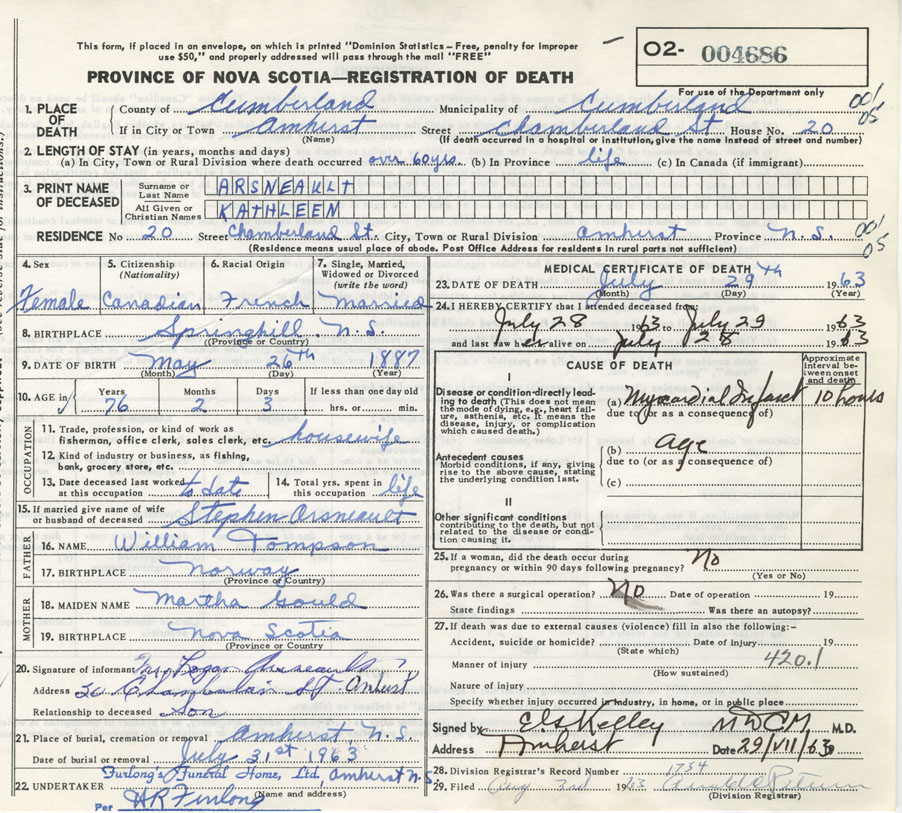 This form, if placed in an envelope, on which is printed "Dominion Statistics—Free, penalty for improper
use $50," and properly addressed will pass through the mail "FREE"
O2- 004686
For use of the Department only
PROVINCE OF NOVA SCOTIA—REGISTRATION OF DEATH
001
05
1. PLACE OF DEATH County of Cumberland Municipality of Cumberland
If in City or Town Amherst Street Chamberland St House No. 20
(Name) (If death occurred in a hospital or institution, give the name instead of street and number)
2. LENGTH OF STAY (in years, months and days)
(a) In City, Town or Rural Division where death occurred over 60 yrs. (b) In Province life (c) In Canada (if immigrant)
3. PRINT NAME OF DECEASED Surname or Last Name ARSNEAULT
All Given or Christian Names KATHLEEN
001
05
RESIDENCE No 20 Street Chamberland St. City, Town or Rural Division Amherst Province N.S.
(Residence means usual place of abode. Post Office Address for residents in rural parts not sufficient)
4. Sex 5. Citizenship (Nationality) 6. Racial Origin 7. Single, Married, Widowed or Divorced (write the word)
Female Canadian French Married
8. BIRTHPLACE Springhill N.S.
(Province or Country)
9. DATE OF BIRTH May 26th 1887
(Month) (Day) (Year)
10. AGE in Years Months Days If less than one day old
76 2 3 hrs. or min.
OCCUPATION
11. Trade, profession, or kind of work as
fisherman, office clerk, sales clerk, etc. housewife
12. Kind of industry or business, as fishing,
bank, grocery store, etc.
13. Date deceased last worked at this occupation to date 14. Total yrs. spent in this occupation life
15. If married give name of wife
or husband of deceased Stephen Arsneault
FATHER
16. NAME William Tompson
17. BIRTHPLACE Norway
(Province or Country)
MOTHER
18. MAIDEN NAME Martha Gould
19. BIRTHPLACE Nova Scotia
(Province or Country)
20. Signature of informant
Address 20 St Amherst
Relationship to deceased Son
21. Place of burial, cremation or removal Amherst N.S.
Date of burial or removal July 31st 1963
Furlong's Funeral Home, Ltd, Amherst N.S.
22. UNDERTAKER (Name and address)
Per HR Furlong
MEDICAL CERTIFICATE OF DEATH
23. DATE OF DEATH July 29th 1963
(Month) (Day) (Year)
24. I HEREBY CERTIFY that I attended deceased from:
July 28 1963 to July 29 1963
and last saw her alive on July 28 1963
CAUSE OF DEATH
Approximate interval between onset and death
I
Disease or condition directly lead-
ing to death (This does not mean
the mode of dying, e.g., heart fail-
ure, asthenia, etc. It means the
disease, injury, or complication
which caused death.)
(a) Myocardial Infarct 10 hours
due to (or as a consequence of)
(b) age
due to (or as a consequence of)
(c)
Antecedent causes
Morbid conditions, if any, giving
rise to the above cause, stating
the underlying condition last.
II
Other significant conditions
contributing to the death, but not
related to the disease or condi-
tion causing it.
25. If a woman, did the death occur during
pregnancy or within 90 days following pregnancy? No
(Yes or No)
26. Was there a surgical operation? No Date of operation 19
State findings Was there an autopsy?
27. If death was due to external causes (violence) fill in also the following:-
Accident, suicide or homicide? Date of injury 19
(State which)
Manner of injury 420.1
(How sustained)
Nature of injury
Specify whether injury occurred in industry, in home, or in public place
Signed by Kelley MDCM M.D.
Address Amherst Date 29/VII/63
28. Division Registrar's Record Number 1734
29. Filed Aug 3rd 1963
(Division Registrar)